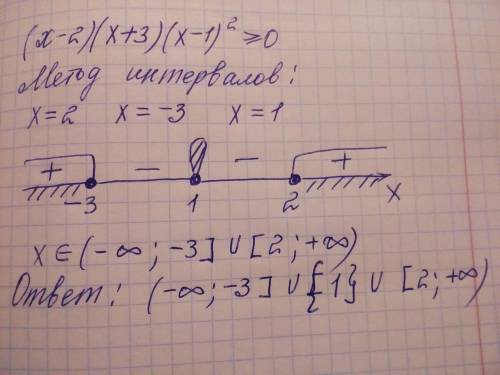 (x-2)(x+3)(x-1)² ≥0
Метод интервалов:
x=2 x=-3 x=1
+ - - +
-3 1 2 x
x∈(-∞; -3] ∪ [2; +∞)
Ответ: (-∞; -3] ∪ {1} ∪ [2; +∞)